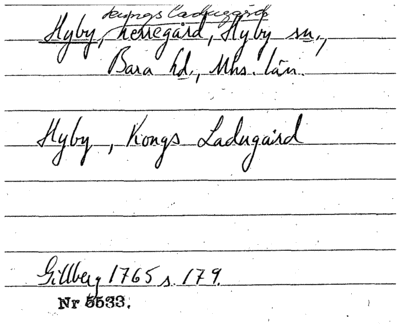 kungsladugård
Hyby, herregård, Hyby sn.,
Bara hd., Mhs. län.
Hyby, Kongs Ladugård
Gillberg 1765 s. 179.
Nr 5533.